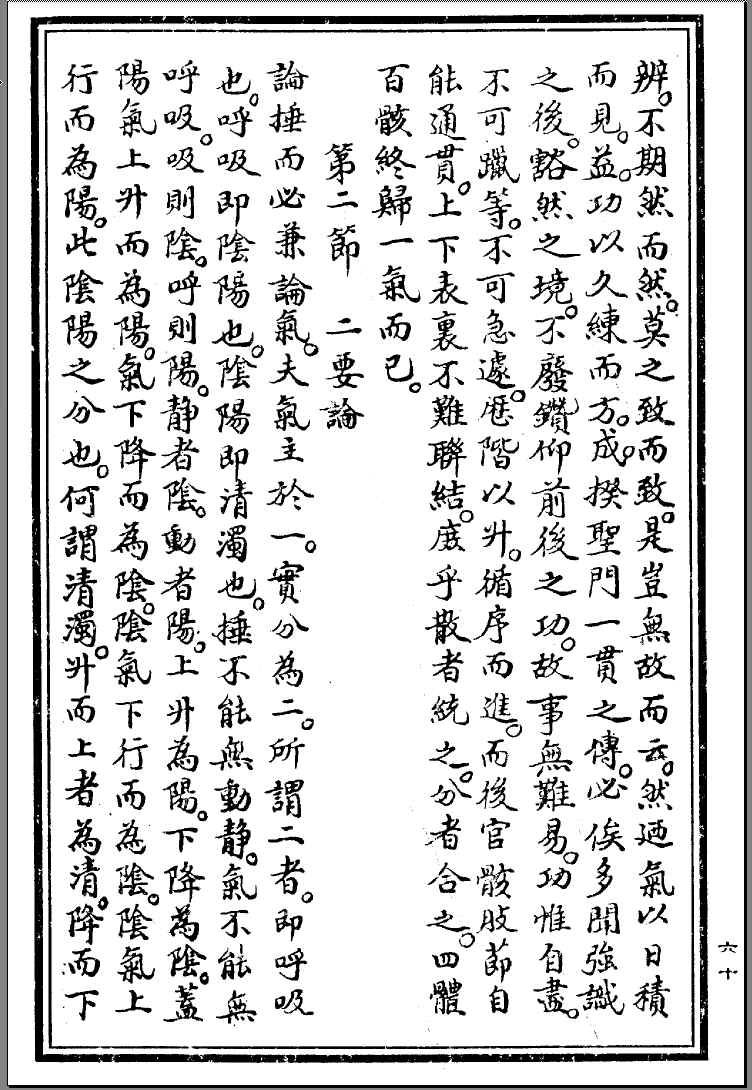 辨。不期然而然。莫之致而致。是豈無故而云。然廼氣以日積
而見。益。功以久練而方。成。揆聖門一貫之傳。必俟多聞強識
之後。豁然之境。不廢鑽仰前後之功。故事無難易。功惟自盡。
不可躐等。不可急遽。歷階以升。循序而進。而後官骸肢節自
能通貫。上下表裏不難聯結。庶乎散者統之。分者合之。四體
百骸終歸一氣而已。
第二節　二要論
論捶而必兼論氣。夫氣主於一。實分為二。所謂二者。即呼吸
也。呼吸即陰陽也。陰陽即清濁也。捶不能無動靜。氣不能無
呼吸。吸則陰。呼則陽。静者陰。動者陽。上升為陽。下降為陰。蓋
陽氣上升而為陽。氣下降而為陰。陰氣下行而為陰。陰氣上
行而為陽。此陰陽之分也。何謂清濁。升而上者為清。降而下
六十